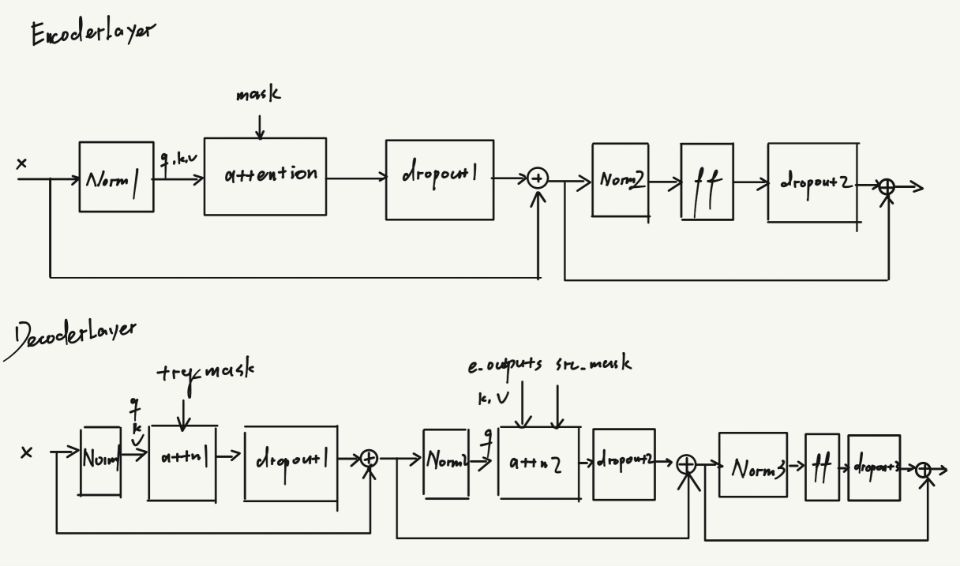 EncoderLayer
mask
x
Norm1
q,k,v
attention
dropout1
+
Norm2
ff
dropout2
+
DecoderLayer
trg_mask
e_outputs src_mask
k,v
x
q
k
v
Norm1
attn1
dropout1
+
Norm2
q
attn2
dropout2
+
Norm3
ff
dropout3
+